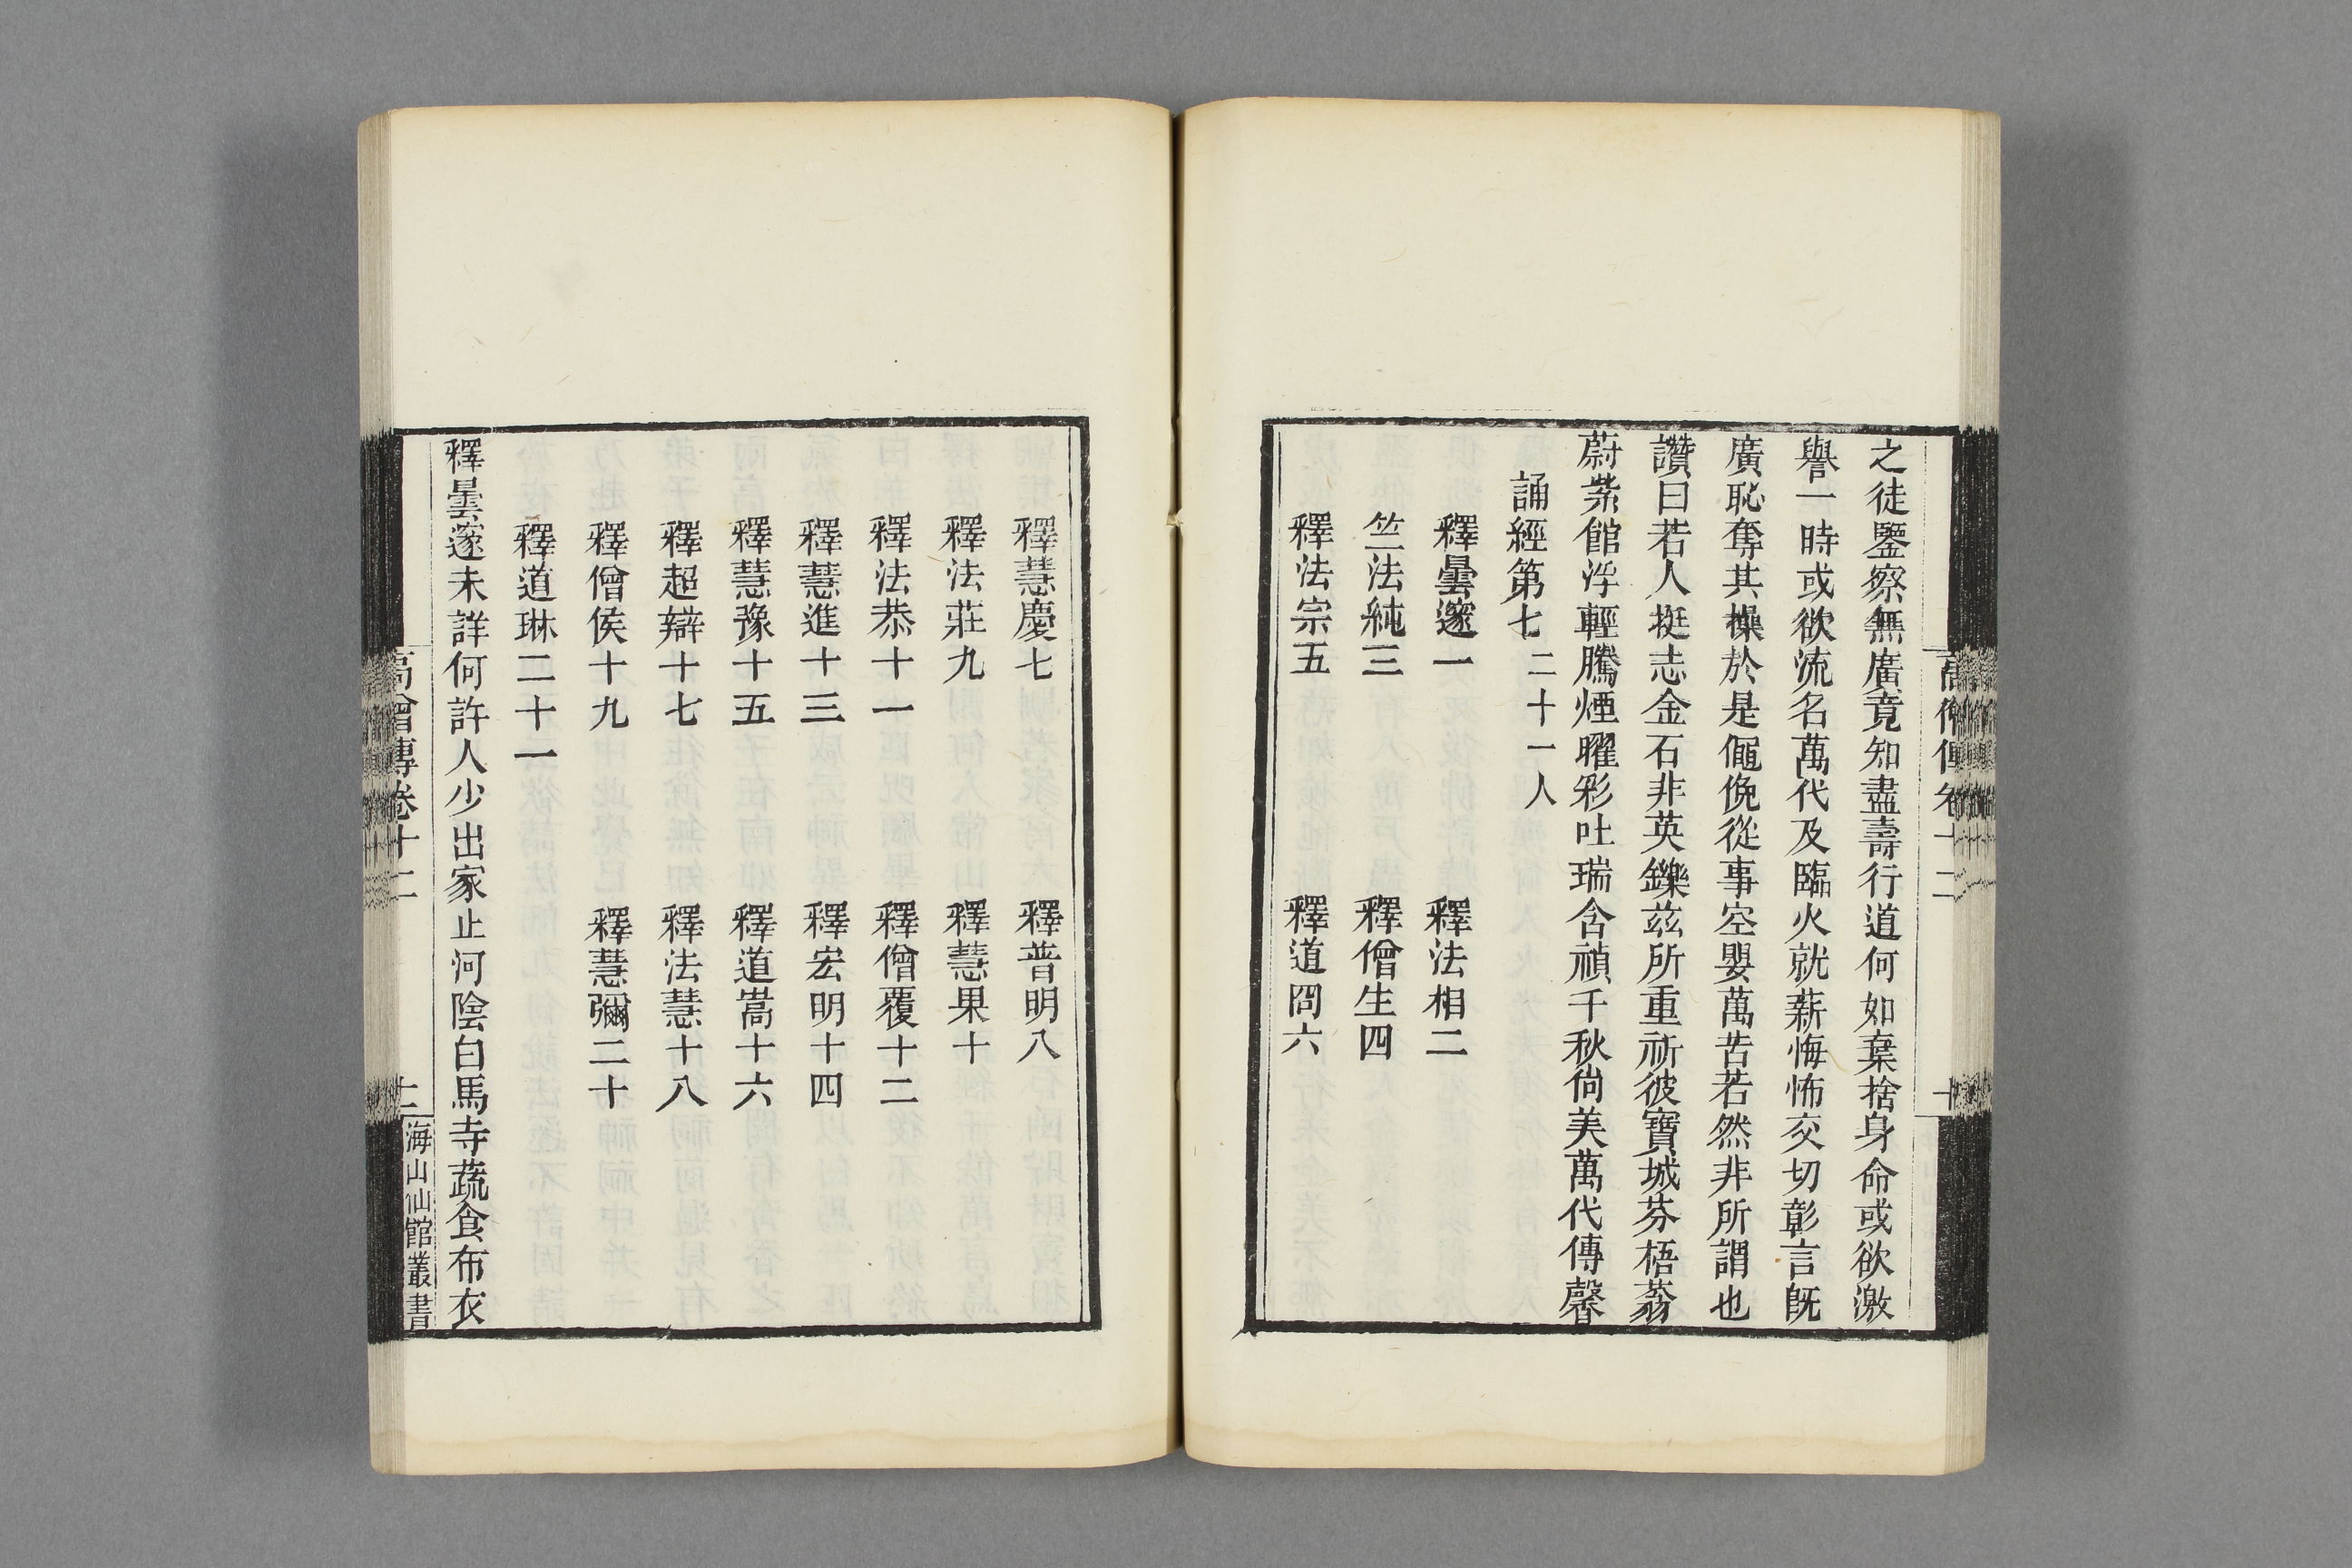 之徒鑒察無廣竟知盡壽行道何如棄捨身命或欲激
譽一時或欲流名萬代及臨火就薪悔怖交切彰言旣
廣恥奪其操於是僶俛從事空嬰萬苦若然非所謂也
讚曰若人挺志金石非英鑠茲所重祈彼寶城芬梧蓊
蔚紫館浮輕騰煙曜彩吐瑞含禎千秋尙美萬代傳馨
誦經第七 二十一人
釋曇邃一 釋法相二
竺法純三 釋僧生四
釋法宗五 釋道冏六
釋慧慶七 釋普明八
釋法莊九 釋慧果十
釋法恭十一 釋僧覆十二
釋慧進十三 釋宏明十四
釋慧豫十五 釋道嵩十六
釋超辯十七 釋法慧十八
釋僧侯十九 釋慧彌二十
釋道琳二十一
釋曇邃未詳何許人少出家止河陰白馬寺蔬食布衣
高僧傳卷十二
海山仙館叢書